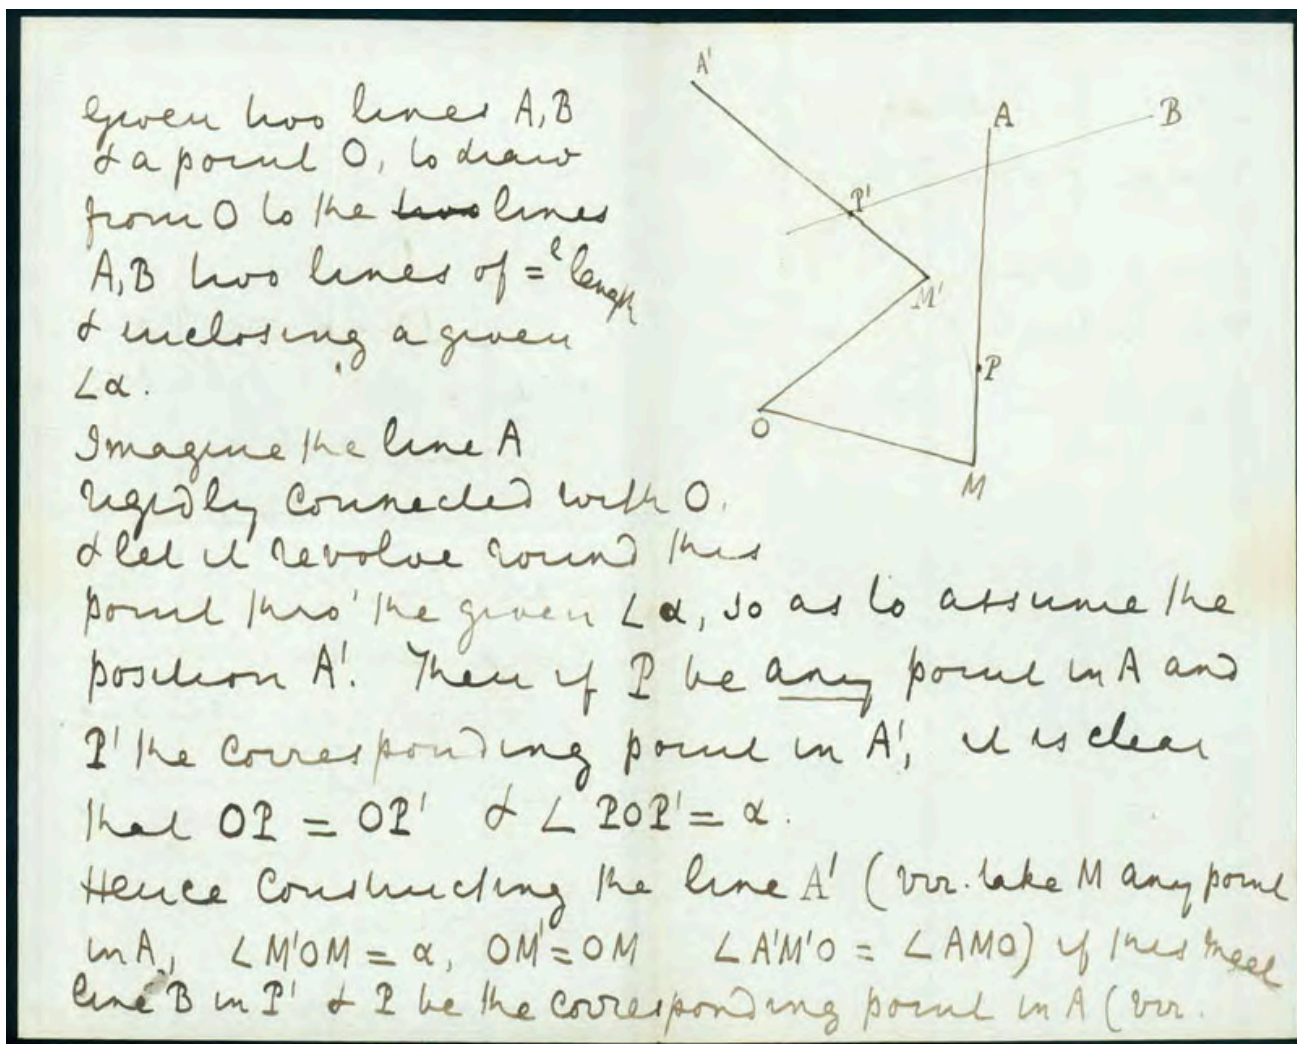 Given two lines A, B
& a point O, to draw
from O to the two lines
A, B two lines of =l length
& inclosing a given
∠α.
Imagine the line A
rigidly connected with O,
& let it revolve round this
point thro' the given ∠α, so as to assume the
position A'. Then if P be any point in A and
P' the corresponding point in A', it is clear
that OP = OP' & ∠ POP' = α.
Hence constructing the line A' (viz. take M any point
in A, ∠M'OM = α, OM' = OM ∠A'M'O = ∠AMO) if this meet
line B in P' & P be the corresponding point in A (viz.
A'
A
B
P'
M'
P
O
M